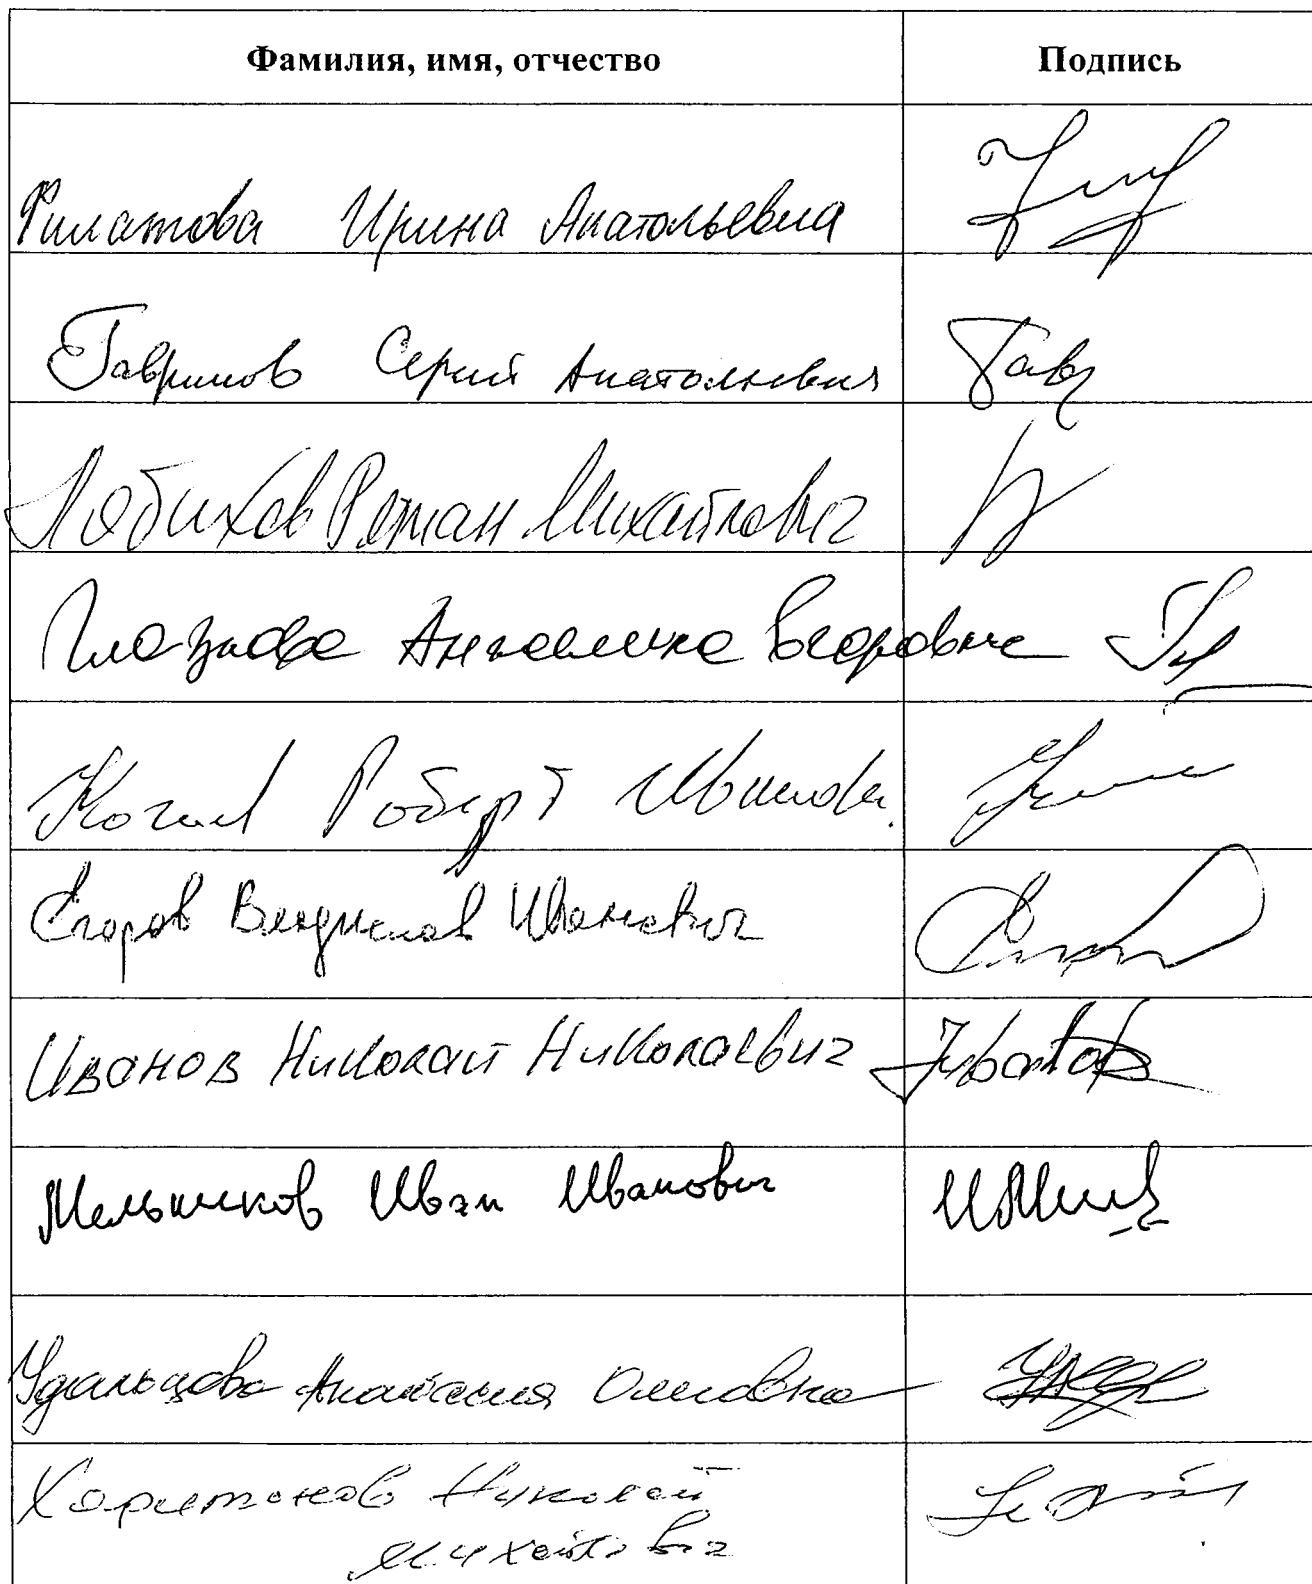 Фамилия, имя, отчество Подпись
Филатова Ирина Анатольевна
Гаврилов Сергей Анатольевич Гавр
Лябихов Роман Михайлович
Глазкова Ангелина Егоровна
Кочиев Роберт Иванович
Егоров Владислав Иванович
Иванов Николай Николаевич Иванов
Мельников Иван Иванович
Удальцова Анастасия Олеговна
Харитонов Николай
Михайлович